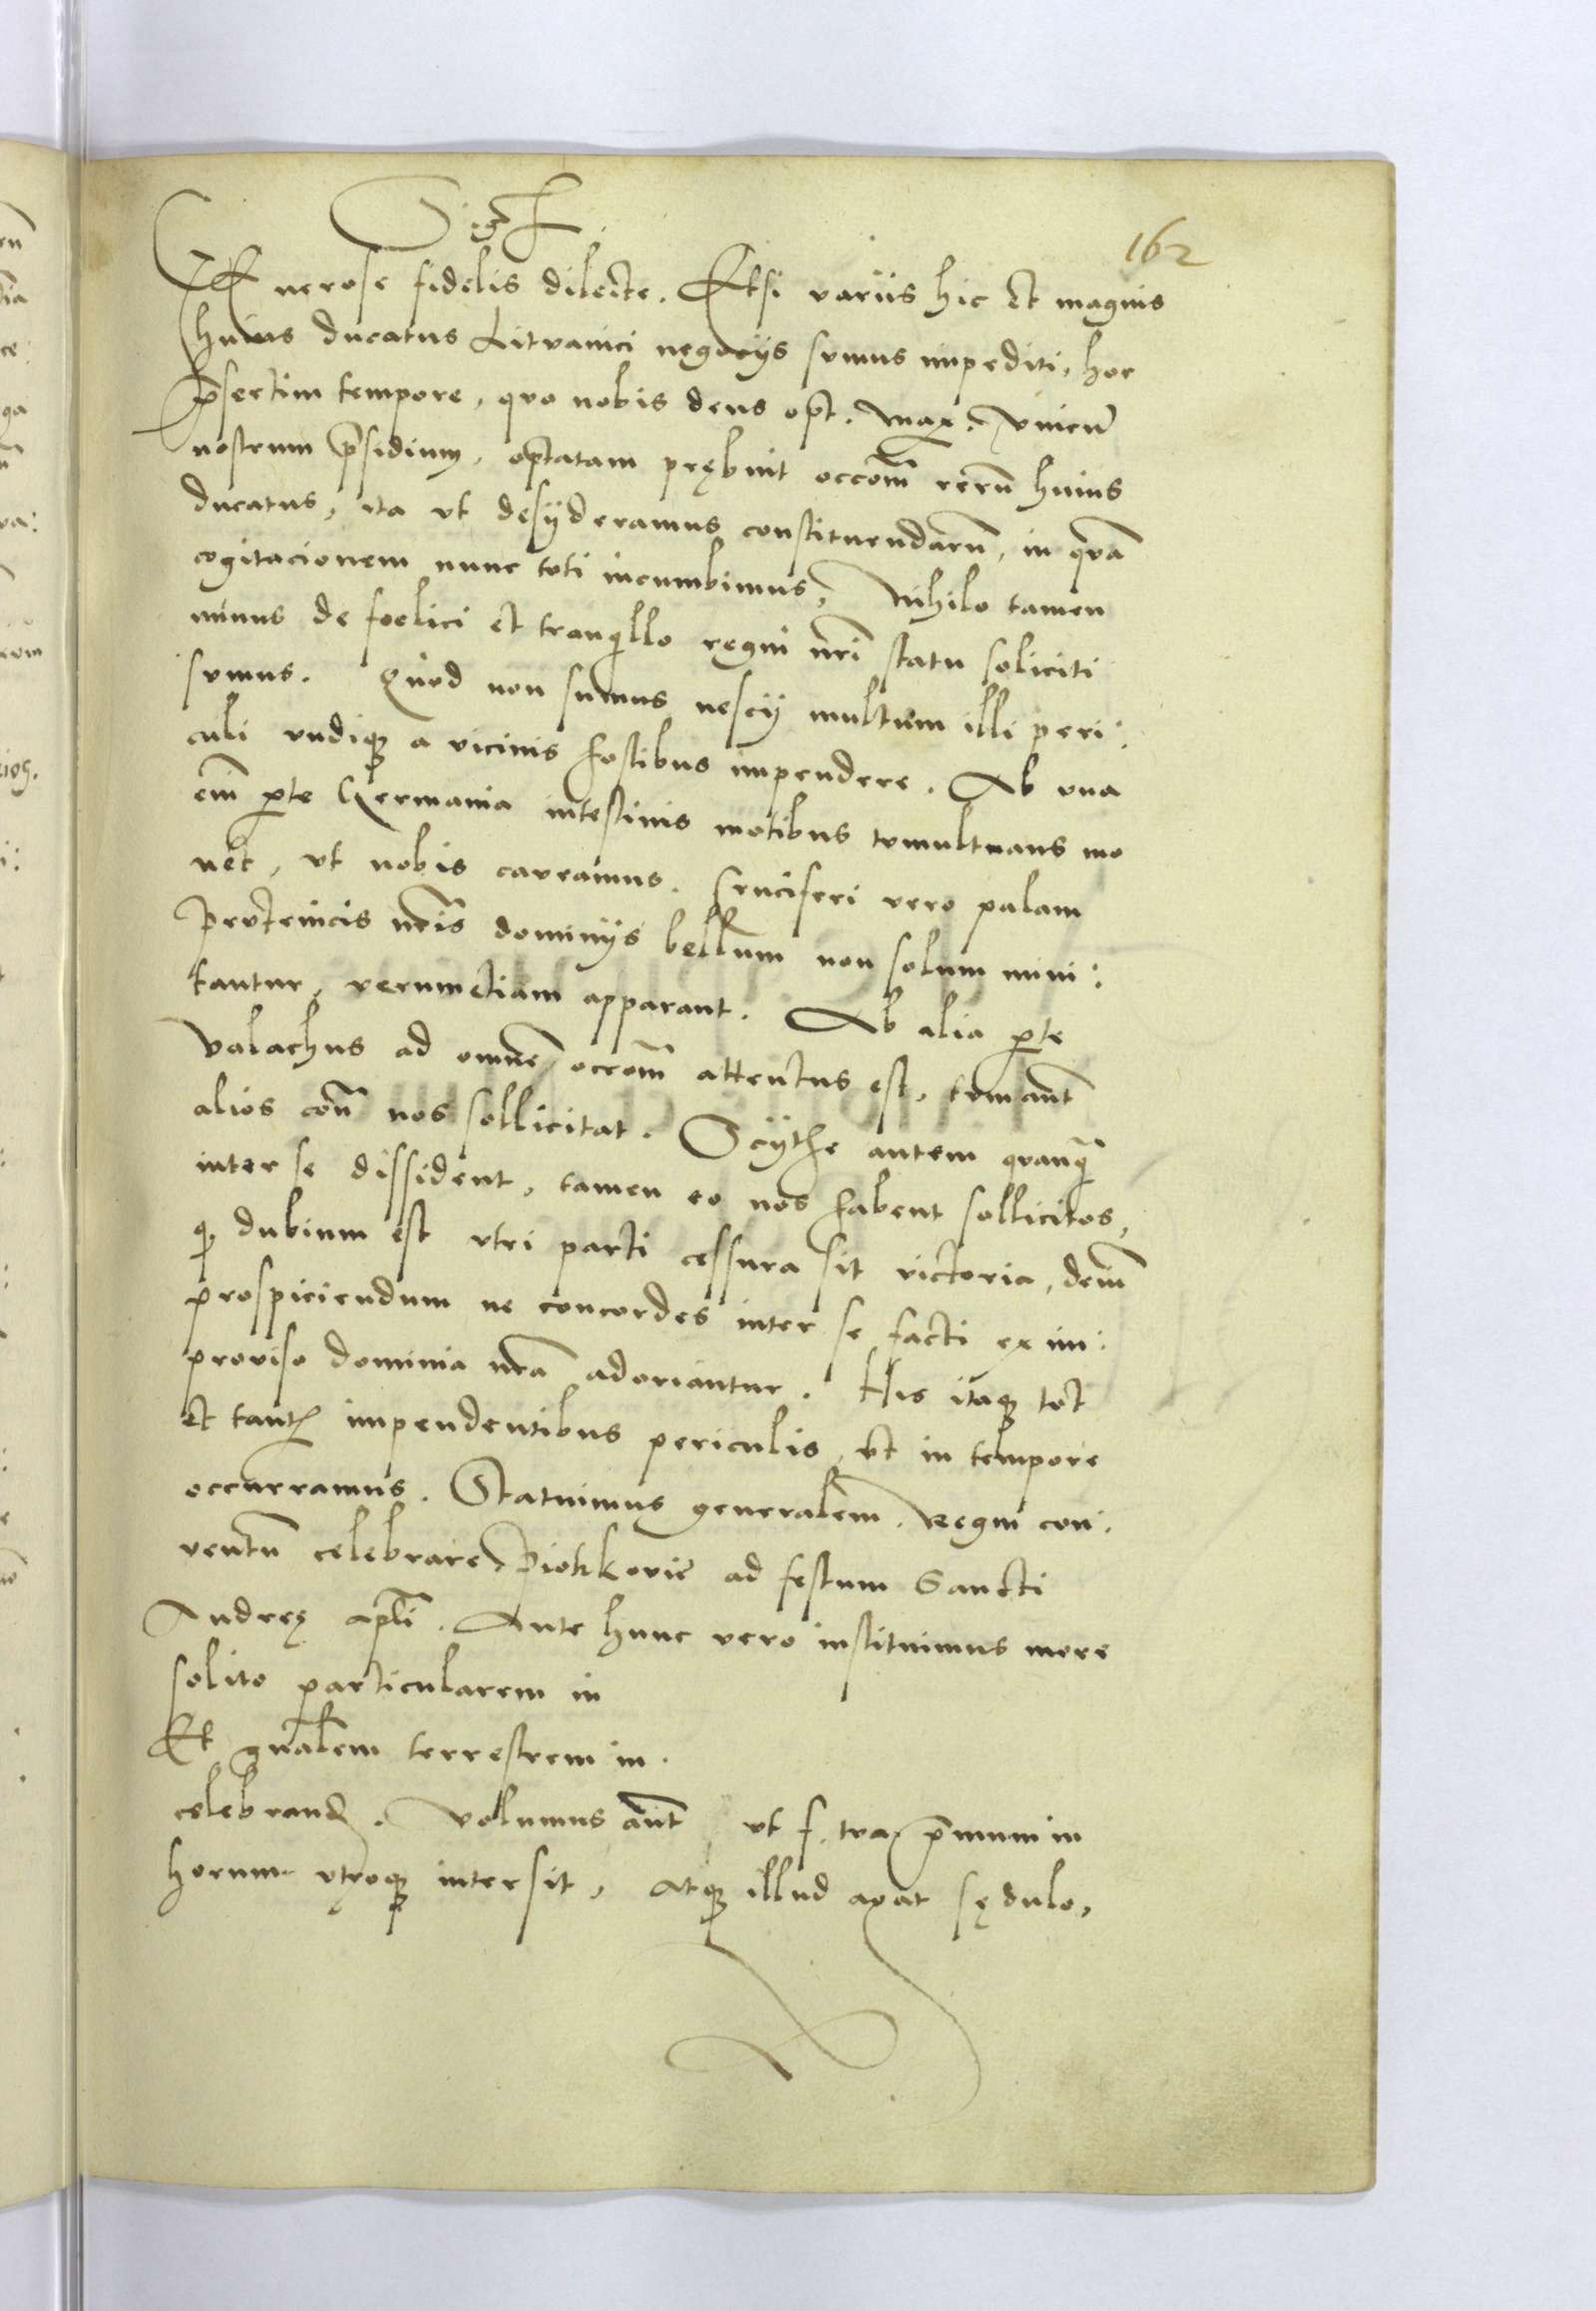 162
Generose fidelis dilecte. Etsi variis hic et magnis
huius ducatus Litvanici negociis sumus impediti, hoc
p̄sertim tempore, quo nobis deus opt. max. unicū
nostrum p̄sidium, optatam prębuit occom̄ rerū huius
ducatus, ita ut desyderamus constituendarū, in quā
cogitacionem nunc toti incumbimus, Nihilo tamen
minus de foelici et tranqllo regni nr̄i statu soliciti
sumus. Quod non sumus nescij multum illi peri:
culi undiqꝫ a vicinis hostibus impendere. Ab una
em̄ ꝑte Germania intestinis motibus tumultuans mo
net, ut nobis caveamus. Cruciferi vero palam
Prutenicis nr̄is dominijs bellum non solum mini:
tantur, verumetiam apparant. Ab alia ꝑte
Valachus ad omnē occom̄ attentus est, tum aut̄
alios cont̄ nos sollicitat. Scythe autem quanq̄
inter se dissident, tamen eo nos habent sollicitos,
qꝫ dubium est utri parti cessura sit victoria, dein̄
prospiciendum ne concordes inter se facti ex im:
proviso dominia nr̄a adoriantur. His itaqꝫ tot
et tantꝭ impendentibus periculis, ut in tempore
occurramus. Statuimus generalem Regni con:
ventū celebrare Piotrkovie ad festum Sancti
Andreę apl̄i. Ante hunc vero instituimus more
solito particularem in
Et gn̄alem terrestrem in.
celebrand. Volumus aut̄ ut f. tua p̄mum in
horum utroqꝫ intersit, atqꝫ illud agat sędulo,